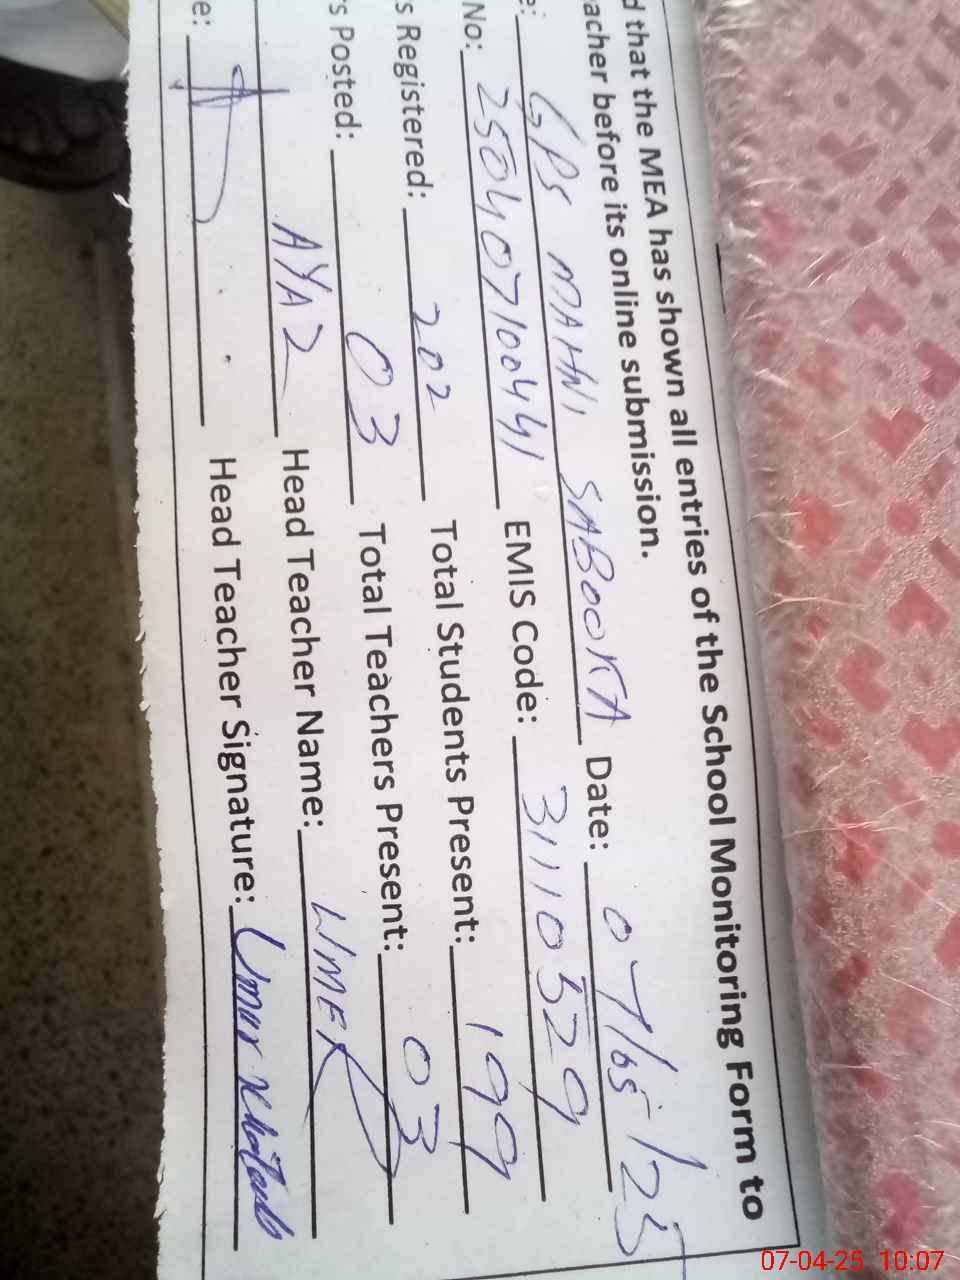 d that the MEA has shown all entries of the School Monitoring Form to
acher before its online submission.
e: GPS MAHNI SABOOKA Date: 07/05/25
No: 25040710044 1 EMIS Code: 31110529
s Registered: 202 Total Students Present: 199
s Posted: 03 Total Teachers Present: 03
AYAZ Head Teacher Name: UMER
e: Head Teacher Signature: Umar Khatab
07-04-25 10:07